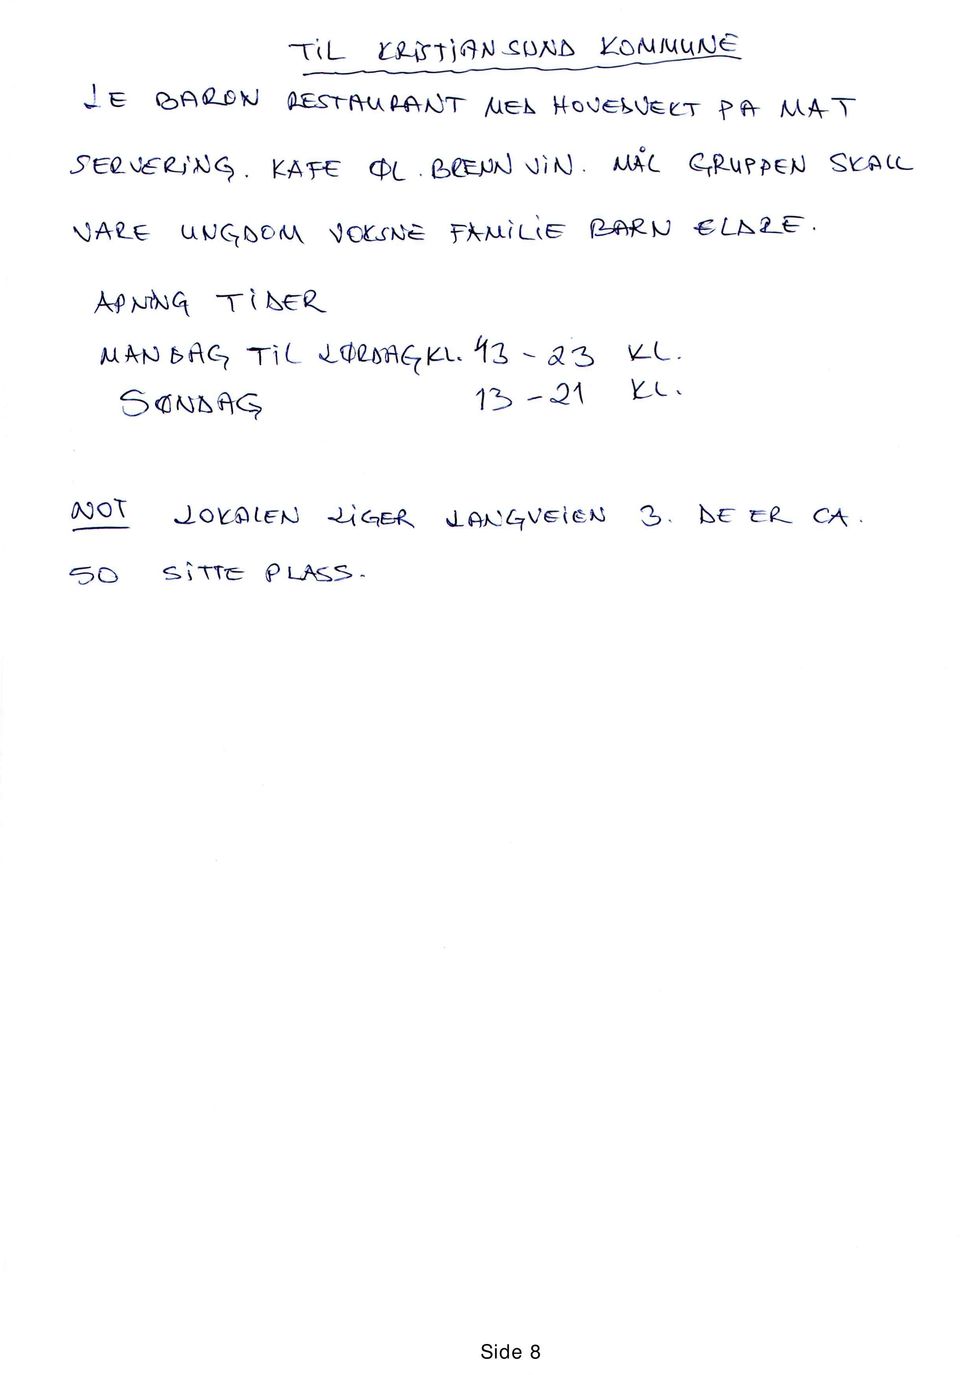 TIL KRISTIANSUND KOMMUNE
LE BARON RESTAURANT MED HOVEDVEKT PA MAT
SERVERING. KAFE ØL. BRENN VIN. MÅL GRUPPEN SKALL
VARE UNGDOM VOKSNE FAMILIE BARN ELDRE.
APNING TIDER
MANDAG TIL LØRDAG KL. 13 - 23 KL.
SØNDAG 13 - 21 KL.
NOT LOKALEN LIGER LANGVEIEN 3. DE ER CA.
50 SITTE PLASS.
Side 8